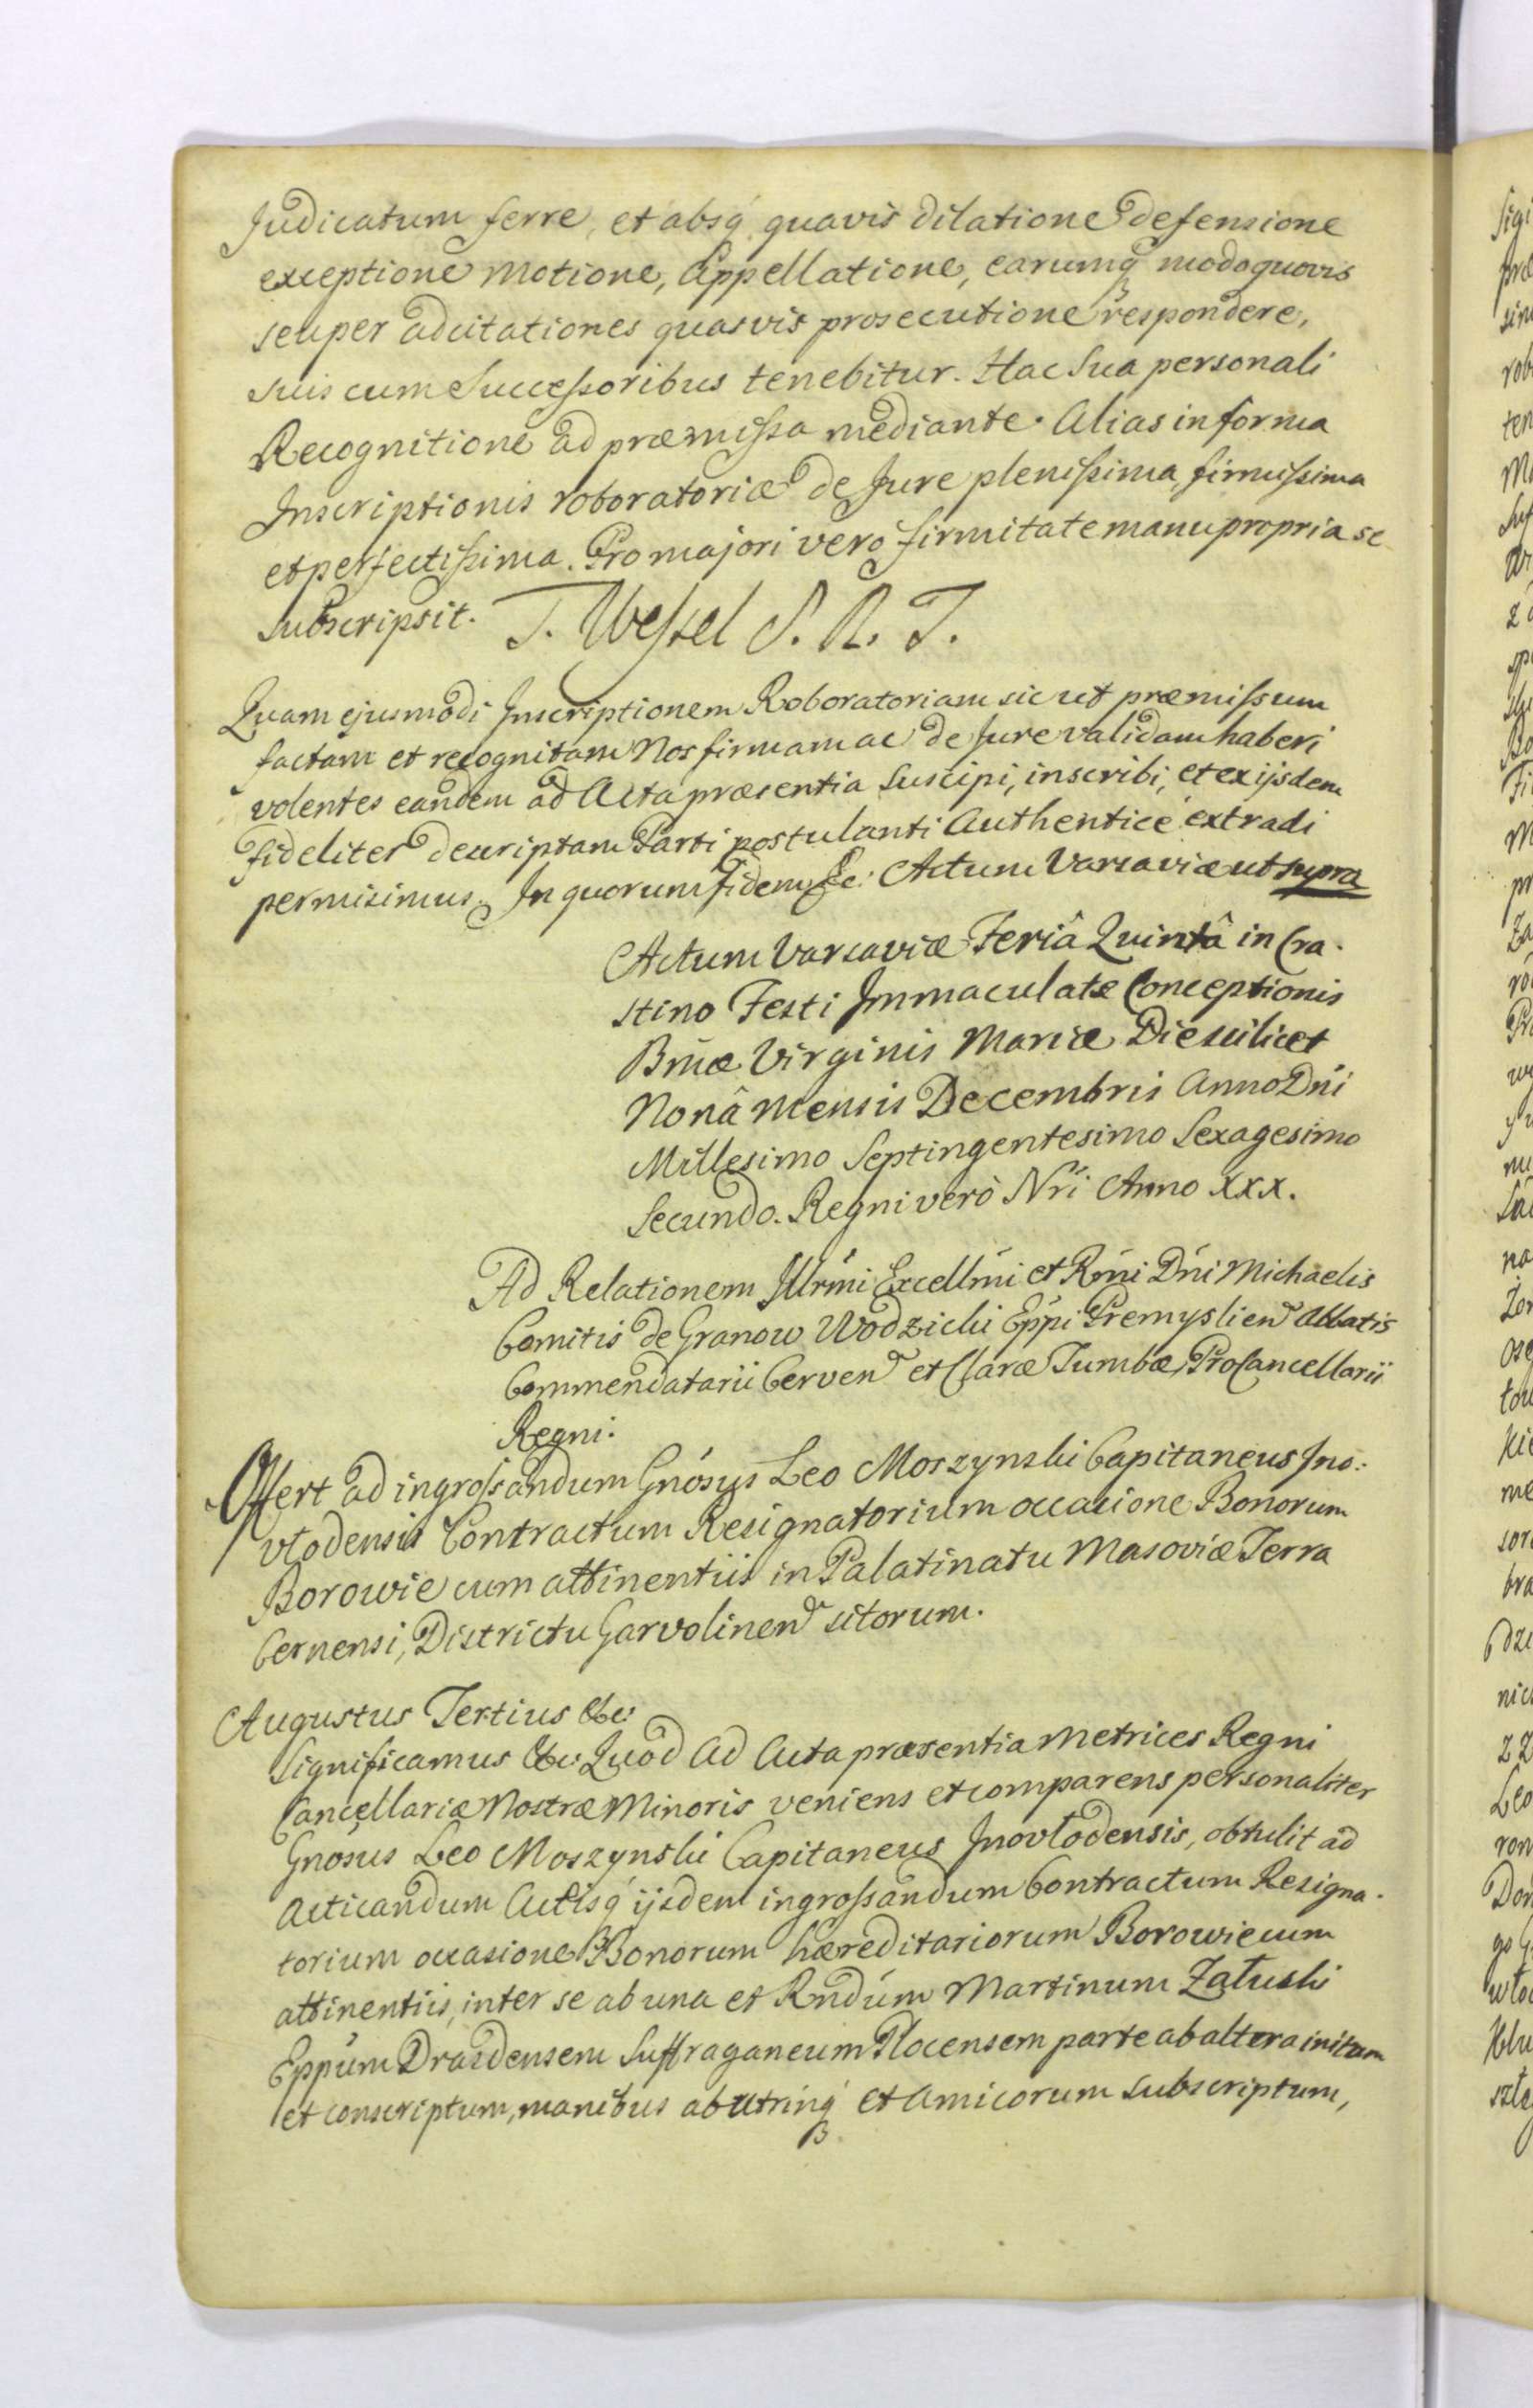 Judicatum ferre, et absq́ quavis dilatione defensione
exceptione Motione, Appellatione, earumq́ modoquovis
seu per adcitationes quasvis prosecutione respondere,
suis cum Successoribus tenebitur. Hac Sua personali
Recognitione ad præmissa mediante. Alias in forma
Inscriptionis roboratoriæ de Jure plenissima, firmissima
et perfectissima. Pro majori vero firmitate manu propria se
Subscripsit. T. Wessel S. R. T.
Quam ejusmodi Inscriptionem Roboratoriam sic ut præmissum
factam et recognitam Nos firmam ac de Jure validam haberi
volentes eandem ad Acta præsentia Suscipi, inscribi, et ex ijsdem
fideliter descriptam Parti postulanti Authentice extradi
permisimus. In quorum fidem &c: Actum Varsaviæ ut supra
Actum Varsaviæ Feriâ Quintâ in Cra-
stino Festi Immaculatæ Conceptionis
Bmæ Virginis Mariæ Die scilicet
Nonâ Mensis Decembris Anno Dńi
Millesimo Septingentesimo Sexagesimo
Secundo. Regni verò Nŕi Anno XXX.
Ad Relationem Illrḿi Excellḿi et Rḿi Dńi Michaelis
Comitis de Granow Wodzicki Eṕpi Premyslien Abbatis
Commendatarii Cerven et Claræ Tumbæ, ProCancellarii
Regni.
Offert ad ingrossandum Gńosus Leo Moszynski Capitaneus Ino-
vlodensis Contractum Resignatorium occasione Bonorum
Borowie cum attinentiis in Palatinatu Masoviæ Terra
Cernensi, Districtu Garvolinen sitorum.
Augustus Tertius &c:
Significamus &c: Quod Ad Acta præsentia Metrices Regni
Cancellariæ Nostræ Minoris veniens et comparens personaliter
Gnósus Leo Moszynski Capitaneus Inovlodensis, obtulit ad
Acticandum Actisq́ ijsdem ingrossandum Contractum Resigna-
torium occasione Bonorum hæreditariorum Borowie cum
attinentiis, inter se ab una et Rndúm Martinum Załuski
Eppúm Drasdensem Suffraganeum Plocensem parte ab altera initum
et conscriptum, manibus ab utrinq́ et Amicorum subscriptum,